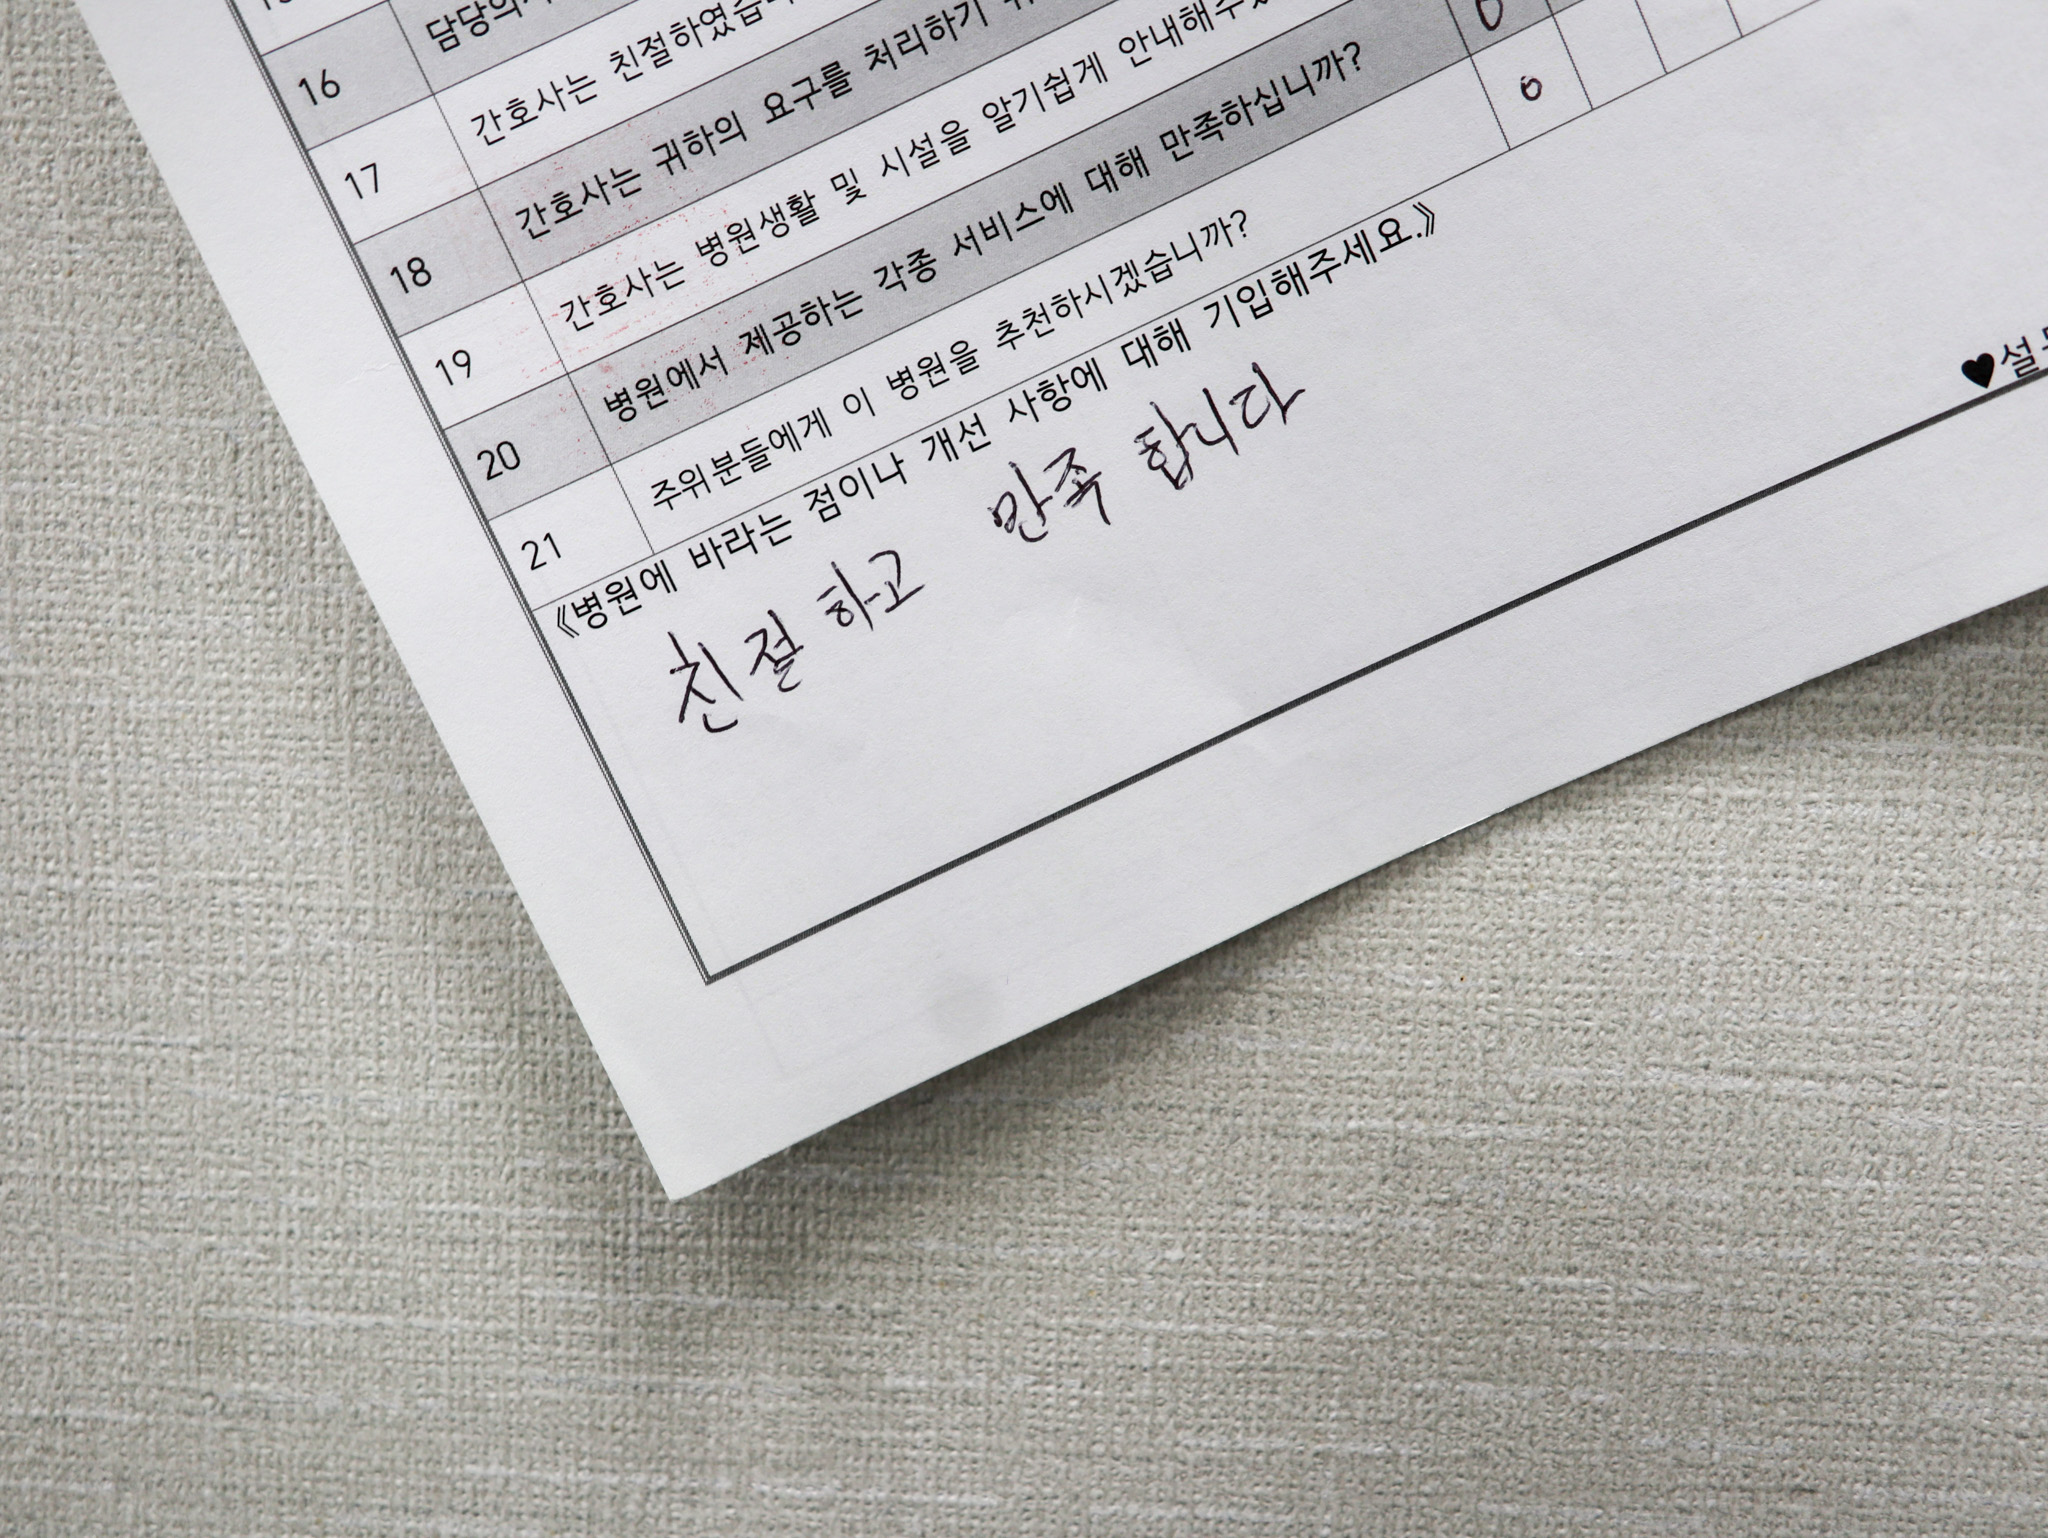 16 담당의
17 간호사는 친절하였습
18 간호사는 귀하의 요구를 처리하기
19 간호사는 병원생활 및 시설을 알기쉽게 안내해주
20 병원에서 제공하는 각종 서비스에 대해 만족하십니까? O
21 주위분들에게 이 병원을 추천하시겠습니까? O
《병원에 바라는 점이나 개선 사항에 대해 기입해주세요.》
친절 하고 만족 합니다
♥설